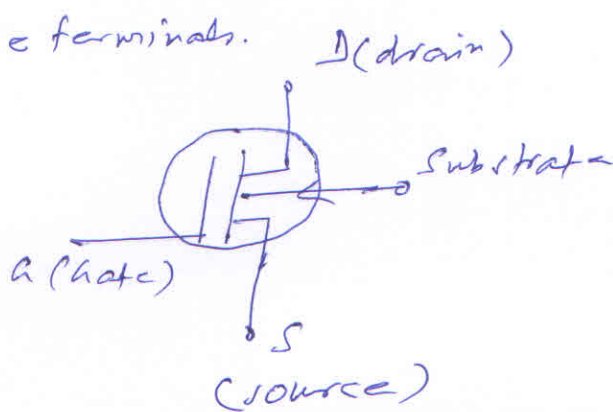 e terminals.
D(drain)
Substrate
G (Gate)
S
(source)